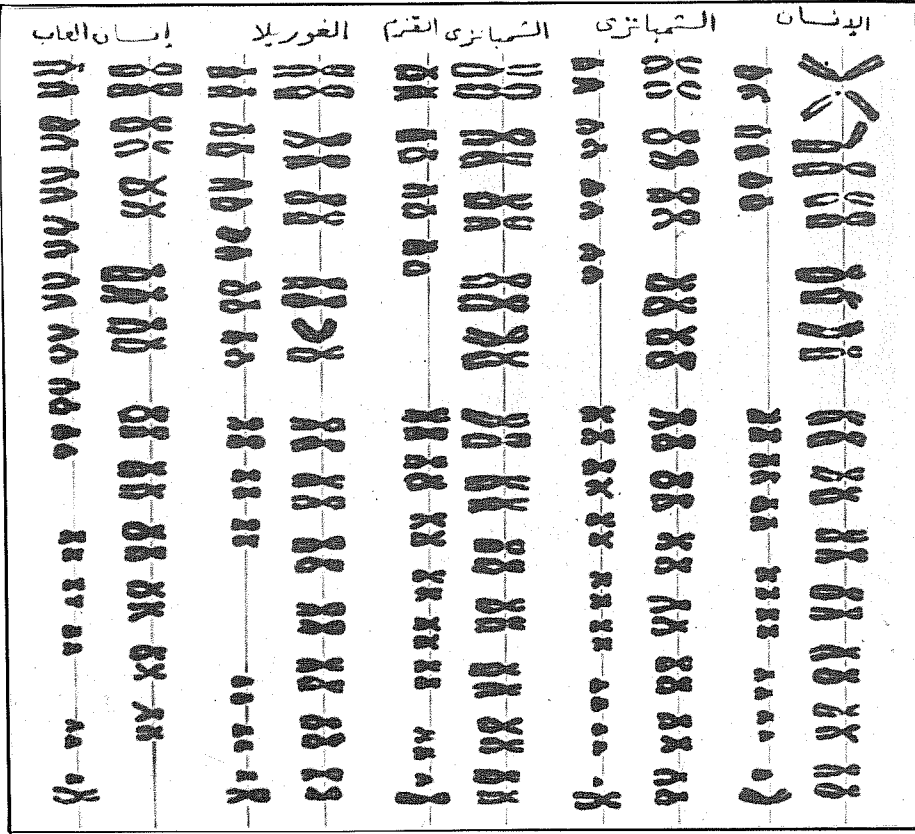 الإنسان الشمبانزى الشمبانزى القزم الغوريلا إنسان الغاب